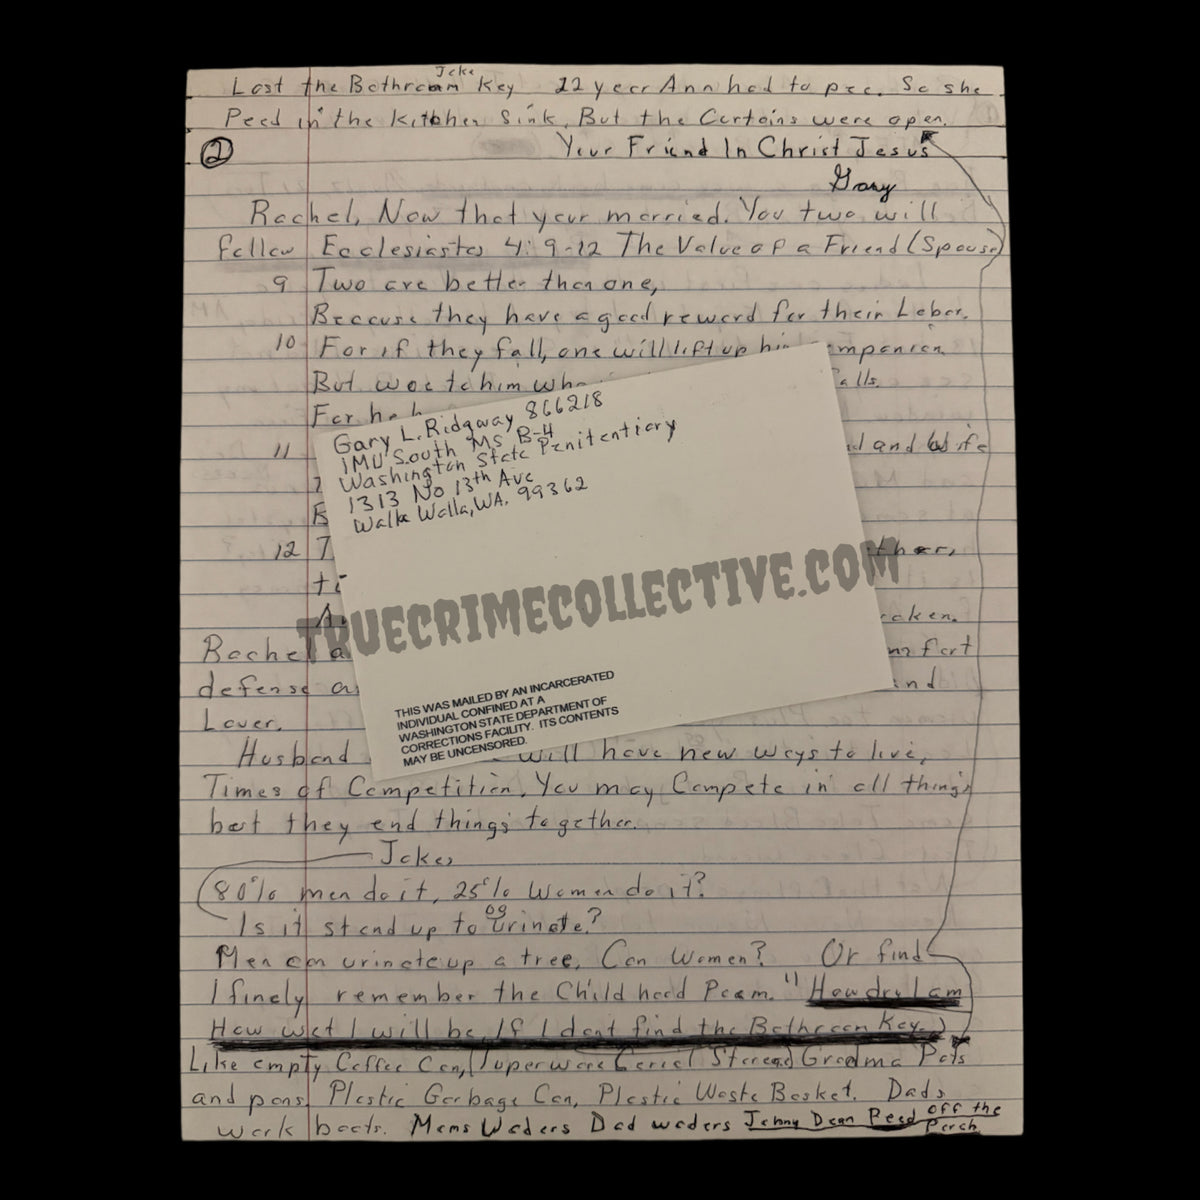 Joke
Lost the Bathroom Key 12 year Ann had to pee. So she
Peed in the Kitchen Sink, But the Curtains were open.
2 Your Friend In Christ Jesus
Gary
Rachel, Now that your married. You two will
follow Ecclesiastes 4:9-12 The Value of a Friend (Spouse)
9 Two are better than one,
Because they have a good reward for their Labor.
10 For if they fall, one will lift up his companion.
But woe to him who falls.
For he
11 and Wife
12 T ther,
ti
A oken.
Rachel a mfort
defense an and
Lover.
Husband will have new ways to live,
Times of Competition, You may Compete in all things
but they end things together.
Jokes
80% men do it, 25% Women do it?
Is it stand up to urinate?
Men can urinate up a tree, Can Women? Or find
I finely remember the Child hood Poem. "How dry I am
How wet I will be, If I dont find the Bathroom Key.")
Like empty Coffee Can, Grandma Pots
and pans, Plastic Garbage Can, Plastic Waste Basket. Dads
work boots. Moms Waders Dad waders Johny Dean Peed off the
Porch
Gary L. Ridgway 866218
IMU South MS B-4
Washington State Penitentiary
1313 No 13th Ave
Walla Walla, WA. 99362
TRUECRIMECOLLECTIVE.COM
THIS WAS MAILED BY AN INCARCERATED
INDIVIDUAL CONFINED AT A
WASHINGTON STATE DEPARTMENT OF
CORRECTIONS FACILITY. ITS CONTENTS
MAY BE UNCENSORED.